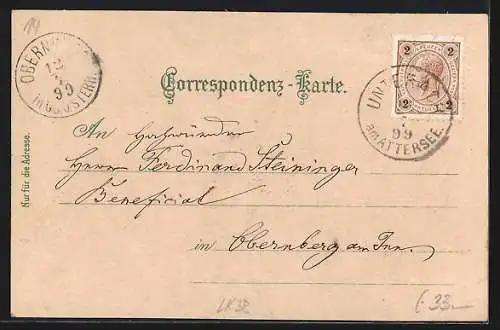 14
OBERN
12
99
in OB. ÖSTERR.
Correspondenz-Karte.
2 2
2 2
UNTERACH
99
am ATTERSEE.
Nur für die Adresse.
An Hochwürden
Herrn Ferdinand Steininger
Beneficiat
in Obernberg am Inn.
LK32
33.-